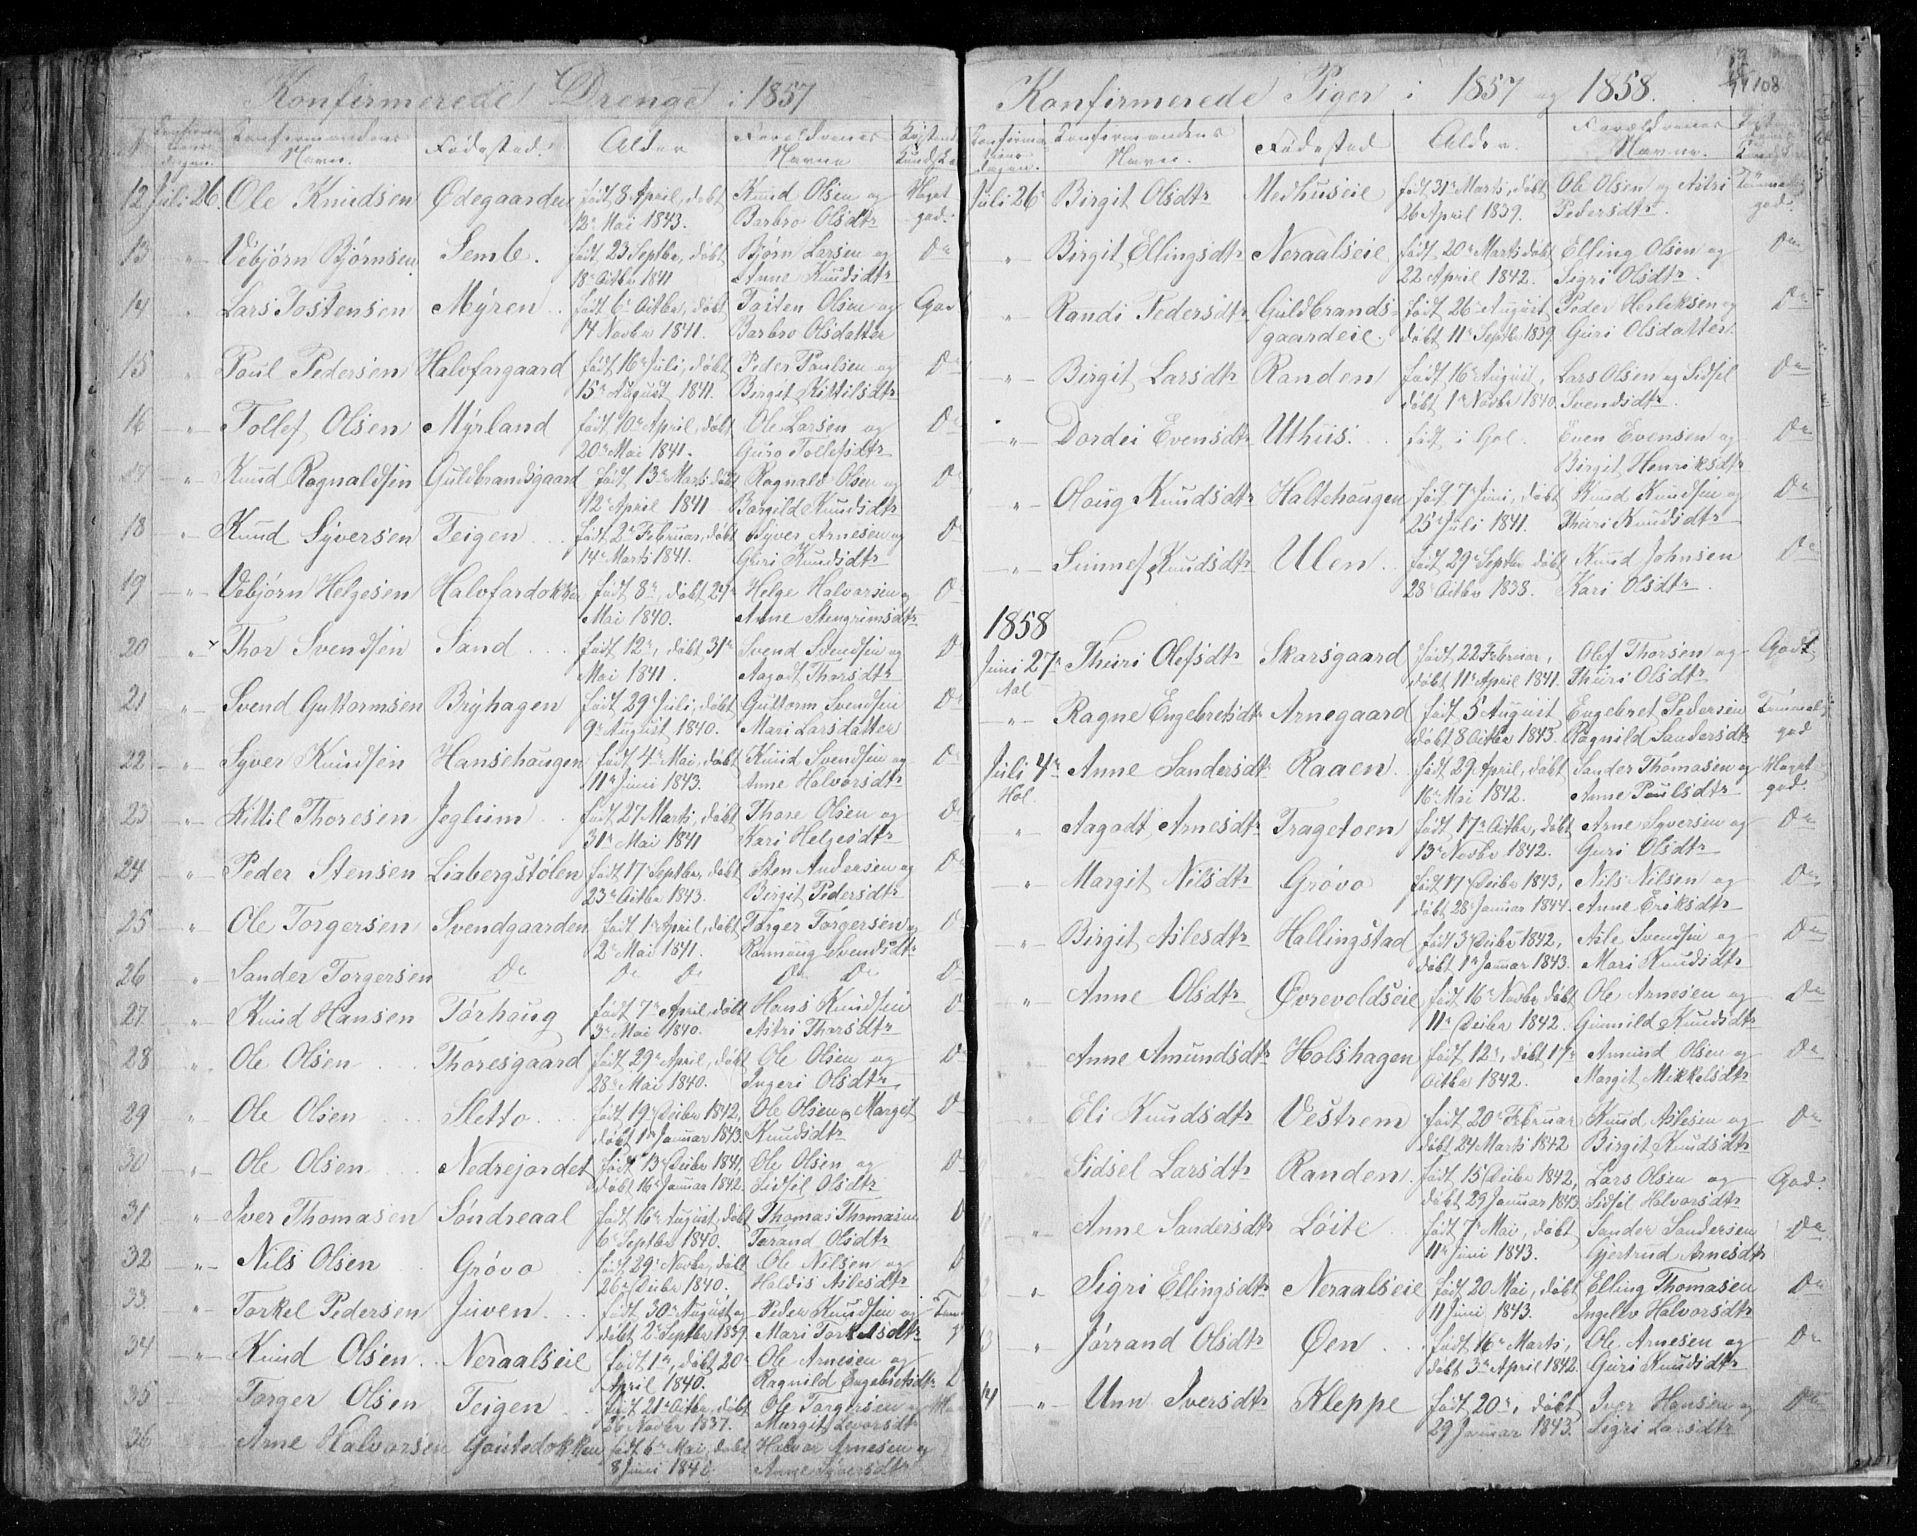 Konfirmerede Drenge i 1857
Konfirmandens Navn. Fødested. Alder Forældrenes Navne
12 Juli 26. Ole Knudsen Ødegaarden født 8 April, døbt Knud Olsen og Meget
12te Mai 1843. Barbro Olsdtr god.
13 " Vebjørn Bjørnsen Semb. født 23 Septbr, døbt Bjørn Larsen og Do
18 Octbr 1841 Anne Knudsdtr
14 " Lars Tostensen Myren født 6te Octbr, døbt Tosten Olsen og God
14 Novbr 1841. Barbro Olsdatter
15 " Paul Pedersen Halvfargaard født 16 Juli, døbt Peder Paulsen og Do
15 August 1841. Birgit Kittilsdtr
16 " Tollef Olsen Myrland født 10 April, døbt Ole Larsen og Do
20 Mai 1841. Guro Tollefsdtr
17 " Knud Ragnaldsen Guldbrandsgaard født 13 Marts døbt Ragnald Olsen og Do
12 April 1841 Bargilde Knudsdtr
18 " Knud Syversen Teigen født 2 Februar, døbt Syver Arnesen og Do
14 Marts 1841. Guri Knudsdtr
19 " Vebjørn Helgesen Halvfardokken født 8, døbt 24 Helge Halvorsen og Do
Mai 1840. Anne Stengrimsdtr
20 " Thor Svendsen Sand født 12, døbt 31te Svend Svendsen og Do
Mai 1841. Aagodt Thorsdtr
21 " Svend Guttormsen Bryhagen født 29 Juli, døbt Guttorm Svendsen Do
9 August 1840. Mari Larsdatter
22 " Syver Knudsen Hansehaugen født 4 Mai, døbt Knud Svendsen og Do
11 Juni 1843. Anne Halvorsdtr
23 " Kittil Thoresen Jeglum født 27 Marts, døbt Thore Olsen og Do
31 Mai 1841 Kari Helgesdtr
24 " Peder Stensen Liabergstølen født 17 Septbr, døbt Sten Andersen og Do
23 Octbr 1843. Birgit Pedersdtr
25 " Ole Torgersen Svendgaarden født 1 April, døbt Torger Torgersen og Do
2 Mai 1841. Rannoug Svendsdtr
26 " Sander Torgersen Do Do Do Do Do Do
27 " Knud Hansen Torhaug født 7 April, døbt Hans Knudsen Do
3 Mai 1840. Aitri Thorsdtr
28 " Ole Olsen Thoresgaard født 29 April, døbt Ole Olsen og Do
28 Mai 1840. Ingeri Olsdtr
29 " Ole Olsen Sletto født 19 Decbr 1842, Ole Olsen og Margit Do
døbt 1 Januar 1843. Knudsdtr
30 " Ole Olsen Nedrejordet født 13 Decbr 1841, Ole Olsen og Do
døbt 16 Januar 1842. Sidsel Olsdtr
31 " Iver Thomasen Søndreaal født 16 August, døbt Thomas Thomasen Do
6 Septbr 1840. Torand Olsdtr
32 " Nils Olsen Grøvo født 29 Novbr, døbt Ole Nilsen og Do
26 Decbr 1840. Haldis Aslesdtr
33 " Torkel Pedersen Juven født 30 August og Peder Knudsen og
døbt 2 Septbr 1839. Mari Torkelsdtr
34 " Knud Olsen Neraalseie født 1, døbt 20 Ole Arnesen og
April 1840. Ragnild Engebretsdtr
35 " Torger Olsen Teigen født 21 Octbr, døbt Ole Torgersen og
26 Novbr 1837. Margit Levorsdtr
36 Arne Halvorsen Goutedokken født 6 Mai, døbt Halvor Arnesen og
8 Juni 1842. Anne Syversdtr
Konfirmerede Piger i 1857 og 1858. 108
Konfirmandens Navn. Fødested Alder. Forældrenes Navne.
Juli 26 Birgit Olsdtr Medhuseie født 31 Marts, døbt Ole Olsen og Aitri Temmelig
26 April 1839. Pedersdtr god.
" Birgit Ellingsdtr Neraalseie født 20 Marts døbt Elling Olsen og Do
22 April 1842. Sigri Olsdtr
" Randi Pedersdtr Guldbrands- født 26 August Peder Herleksen og Do
gaardeie døbt 11 Septbr 1839. Guri Olsdatter
" Birgit Larsdtr Randen født 16 August, Lars Olsen og Sidsel Do
døbt 1 Novbr 1840. Svendsdtr
" Dordei Evensdtr Uthus født i Gol. Even Evensen og Do
Birgit Henriksdtr
" Olaug Knudsdtr Haltehaugen født 7 Juni, døbt Knud Knudsen og Do
25 Juli 1841. Thuri Knudsdtr
" Sunnef Knudsdtr Ulen født 29 Septbr døbt Knud Johnsen Do
28 Octbr 1838. Kari Olsdtr
1858
Juni 27 Thuri Olefsdtr Skarsgaard født 22 Februar, Olef Thorsen og Godt
Aal døbt 11 April 1841. Thuri Olsdtr
" Ragne Engebretsdtr Arnegaard født 5 August Engebret Pedersen Temmelig
døbt 8 Octbr 1843. Ragnild Sandersdtr god
Juli 4 Anne Sandersdtr Raaen født 29 April, døbt Sander Thomasen og Meget
Hol. 16 Mai 1842. Anne Paulsdtr god.
" Aagodt Arnesdtr Tragetoen født 17 Octbr, døbt Arne Syversen og Do
13 Novbr 1842. Guri Olsdtr
" Margit Nilsdtr Grøvo født 17 Decbr 1843, Nils Nilsen og Do
døbt 28 Januar 1844. Anne Eriksdtr
" Birgit Aslesdtr Hallingstad født 3 Decbr 1842, Asle Svendsen og Do
døbt 1 Januar 1843. Mari Knudsdtr
" Anne Olsdtr Øvrevoldseie født 16 Novbr døbt Ole Arnesen og Do
11 Decbr 1842. Gunnild Knudsdtr
" Anne Amundsdtr Holshagen født 12, døbt 17 Amund Olsen og Do
Octbr 1842. Margit Mikkelsdtr
Eli Knudsdtr Vestrem født 20 Februar Knud Aslesen og Do
døbt 24 Marts 1842 Birgit Knudsdtr
Sidsel Larsdtr Randen født 15 Decbr 1842, Lars Olsen og God.
døbt 29 Januar 1843. Sidsel Halvorsdtr
" Anne Sandersdtr Løite født 7 Mai, døbt Sander Sandersen Do
11 Juni 1843. Gjertrud Arnesdtr
" Sigri Ellingsdtr Neraalseie født 20 Mai, døbt Elling Thomasen Do
11 Juni 1843. Ingelev Halvorsdtr
13 " Jørrand Olsdtr Øen født 16 Marts, Ole Arnesen og Do
døbt 3 April 1842. Guri Knudsdtr
14 " Unn Iversdtr Kleppe født 20, døbt Iver Hansen og Do
29 Januar 1843. Sigri Larsdtr